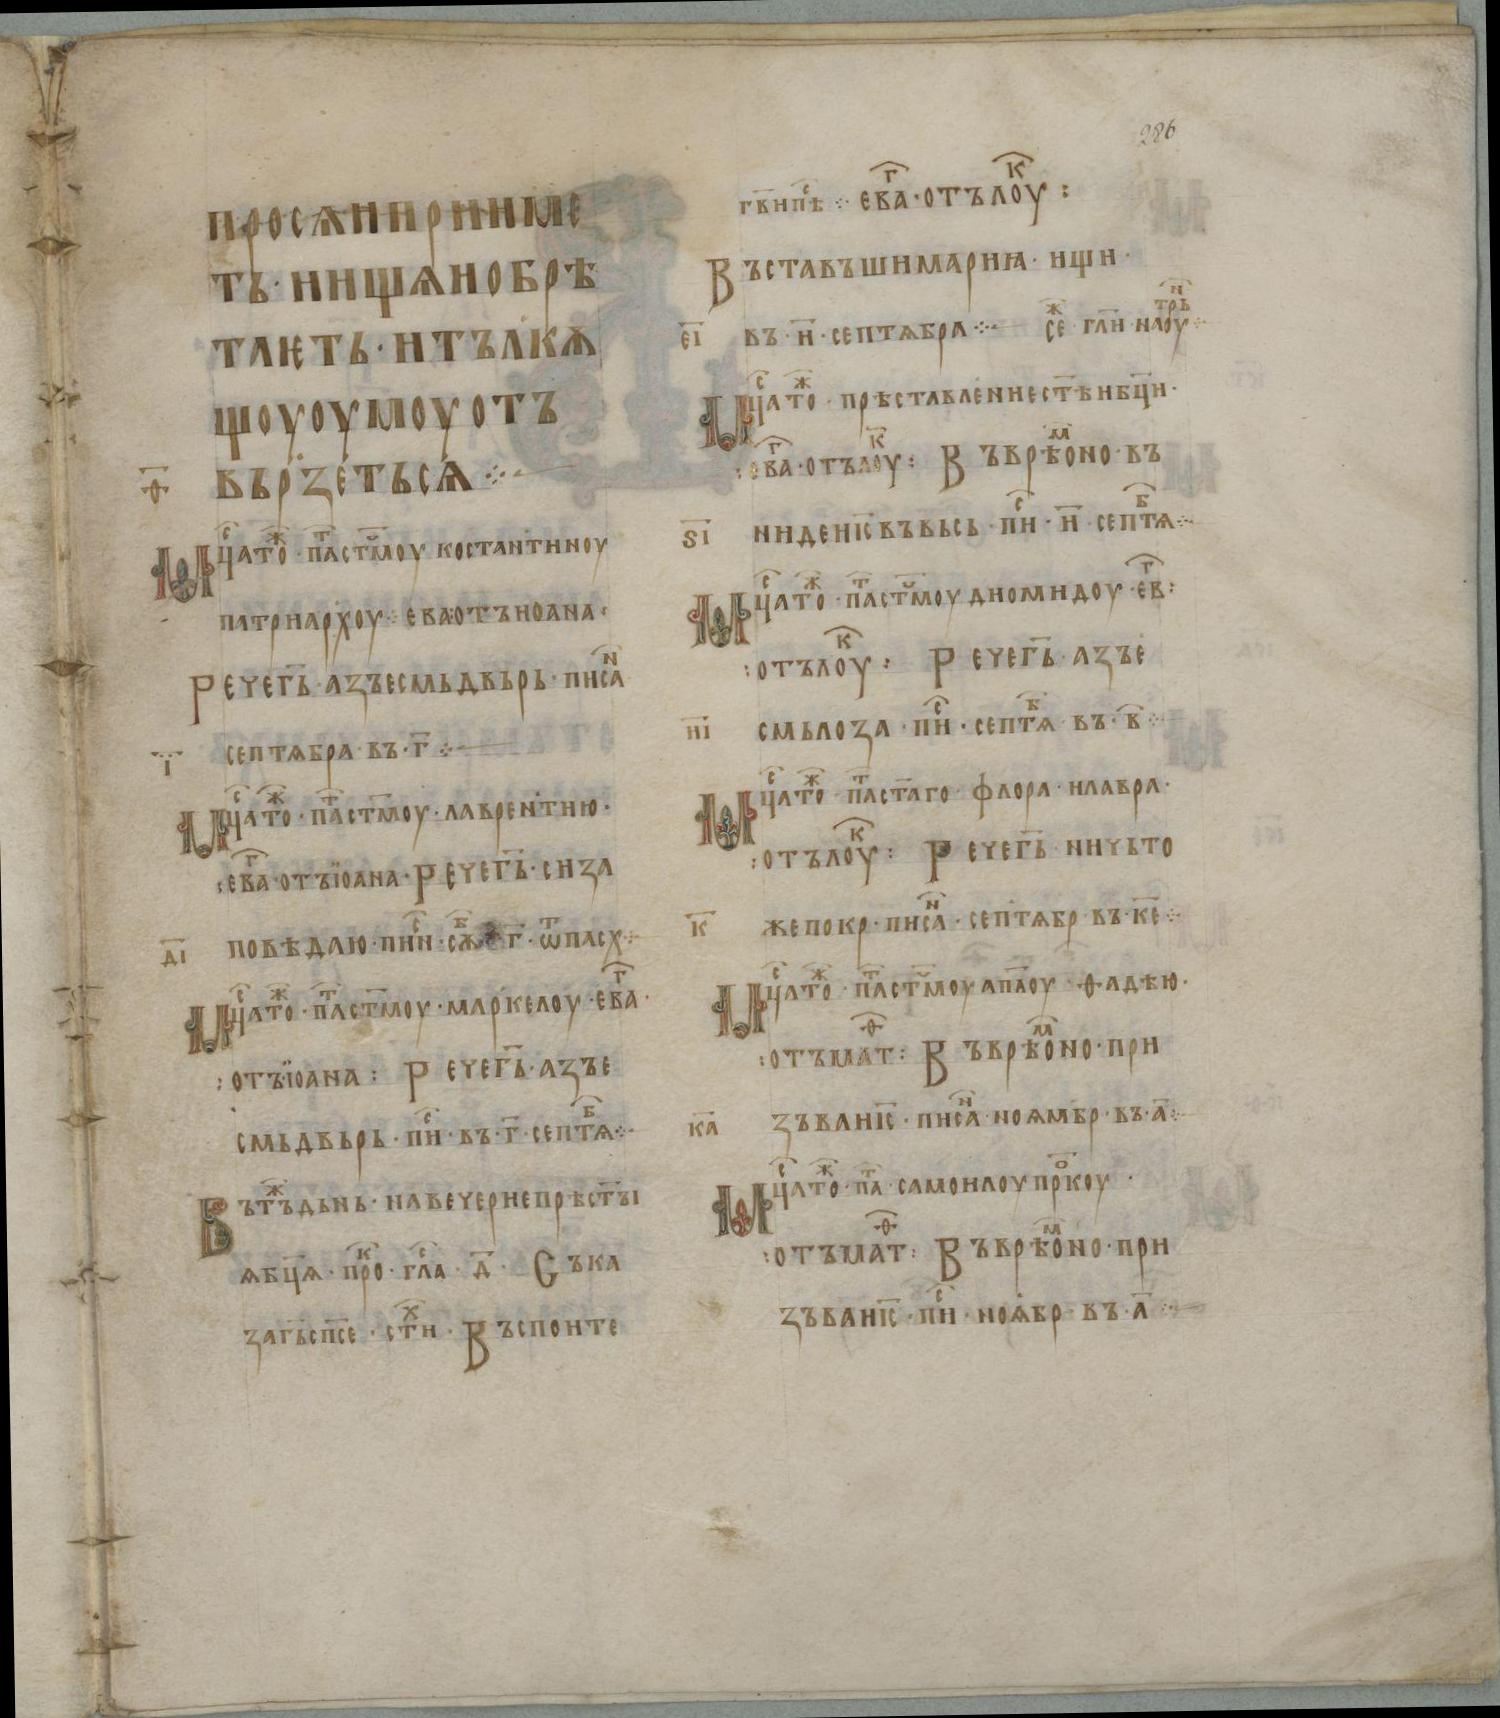 286
просѧиприиме
ть · иищѧиобрѣ
таѥть · итълкѫ
щоуоумоуотъ
вьрзетьсѧ ⁘
ѳ҃
мц҃ато҃ · па҃ст҃моу костаньтиноу
патриархоу · ева отъиоана ·
Речег҃ь · азъесмьдвьрь · писа
септѧбра · въ · г҃ ⁘
і҃
мц҃ато҃ · па҃ст҃моу · лаврентию ·
: ева · отъіоана · Речег҃ь · сиза
д҃і
повѣдаю · пии · сѫ · г҃ · ѿпасх ⁘
мц҃ато҃ · па҃ст҃моу · маркелоу · ева ·
: отъіоана : Речег҃ь · азъе
смьдвьрь · пи · въ · г҃ · септѧ ⁘
Вътъдьнь · навечернепрѣст҃ъі
ѧбц҃ѧ · про · гла · д҃ · Съка
заг҃ьсп҃се · сти · Въспоите
гв҃ип҃ѣ ⁘ ева · отълоу :
Въставъшимария · ищи ·
е҃і
въ · и҃ · септѧбра ⁘ се гл҃и · наоутрь
мц҃ато҃ · прѣставлениест҃ѣибц҃и ·
: ева · отълоу : Въврѣоно · въ
ѕ҃і
нидеиі҃свъвьсь · пи · и҃ · септѧ ⁘
мц҃ато҃ · па҃ст҃моу диомидоу · ев :
: отълоу : Речег҃ь · азъе
и҃і
смьлоза · пи · септѧ · въ · в҃ ⁘
мц҃ато҃ · па҃ст҃аго · флора · илавра ·
: отълоу : Речег҃ь · ничьто
к҃
жепокр · писа · септѧбр · въ · к҃е ⁘
мц҃ато҃ · па҃ст҃моуап҃лоу · ѳадѣю ·
: отъмат : Въврѣоно · при
к҃а
зъваиі҃с · писа · ноѧмбр · въ · а҃ ⁘
мц҃ато҃ · па · самоилоупр҃коу ·
: отъмат : Въврѣоно · при
зъваиі҃с · пи · ноѧбр · въ · а҃ ⁘